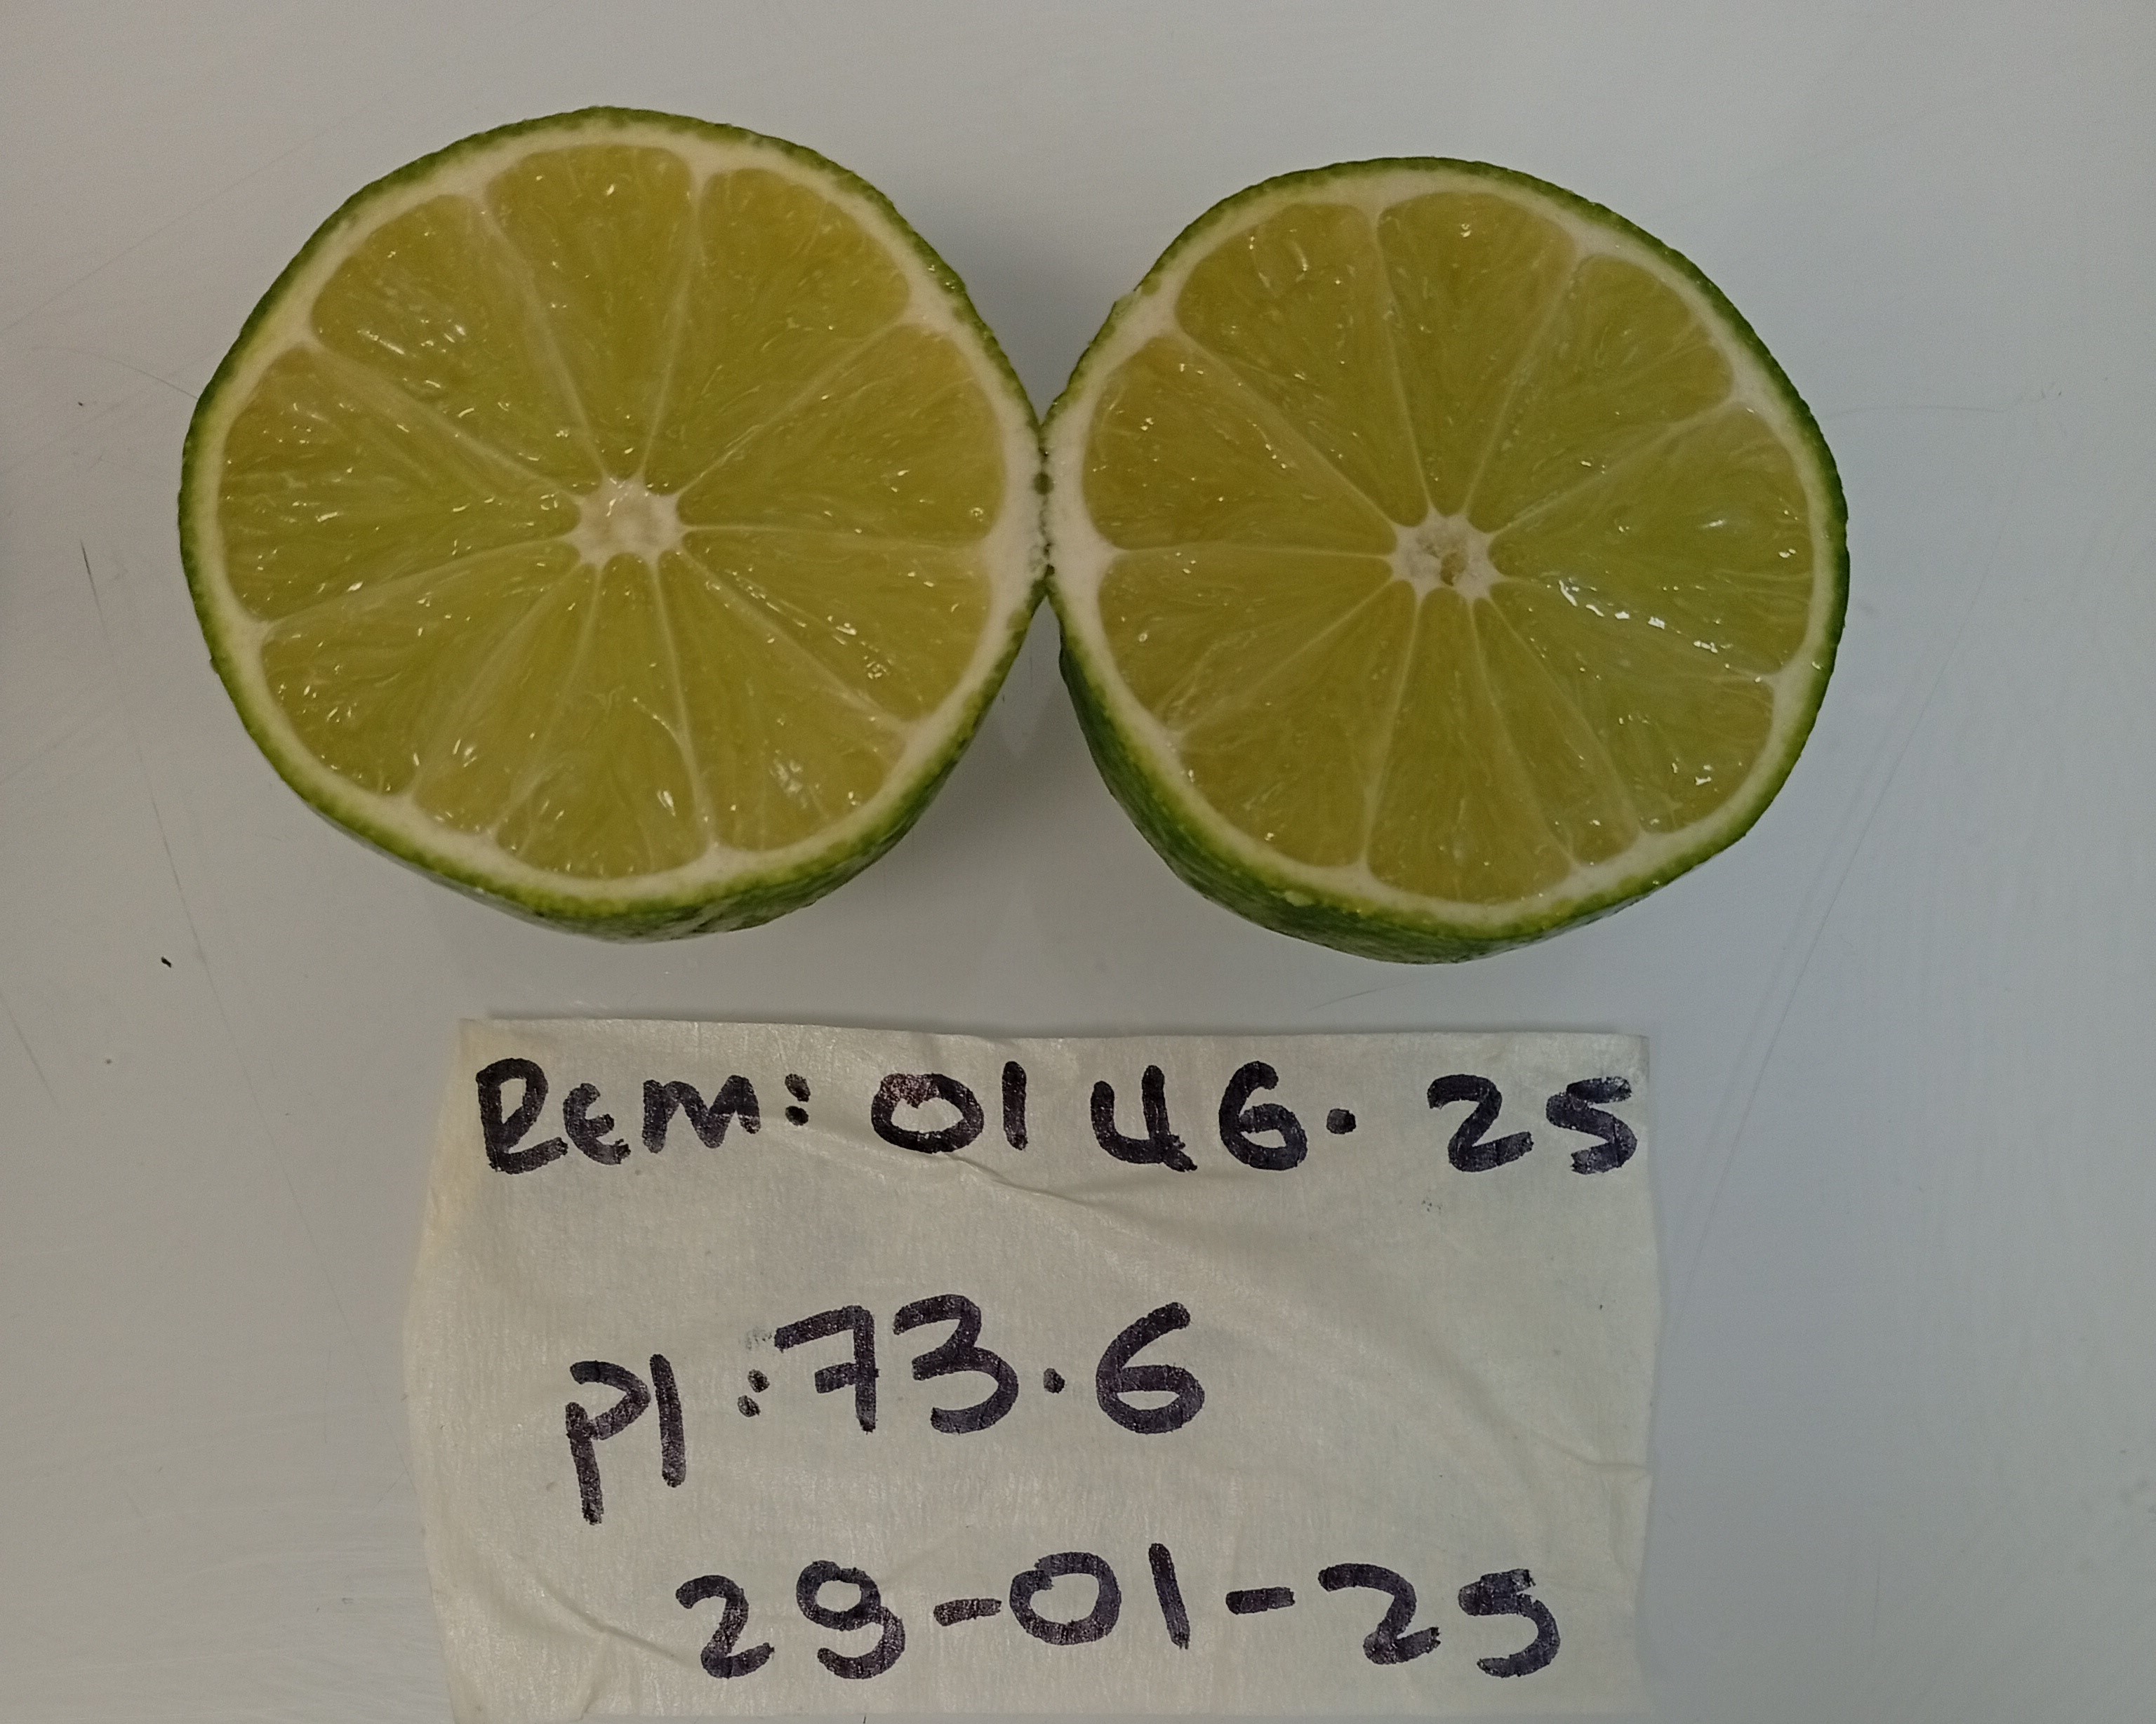 REM: 0146. 25
Pl: 73.6
29-01-25